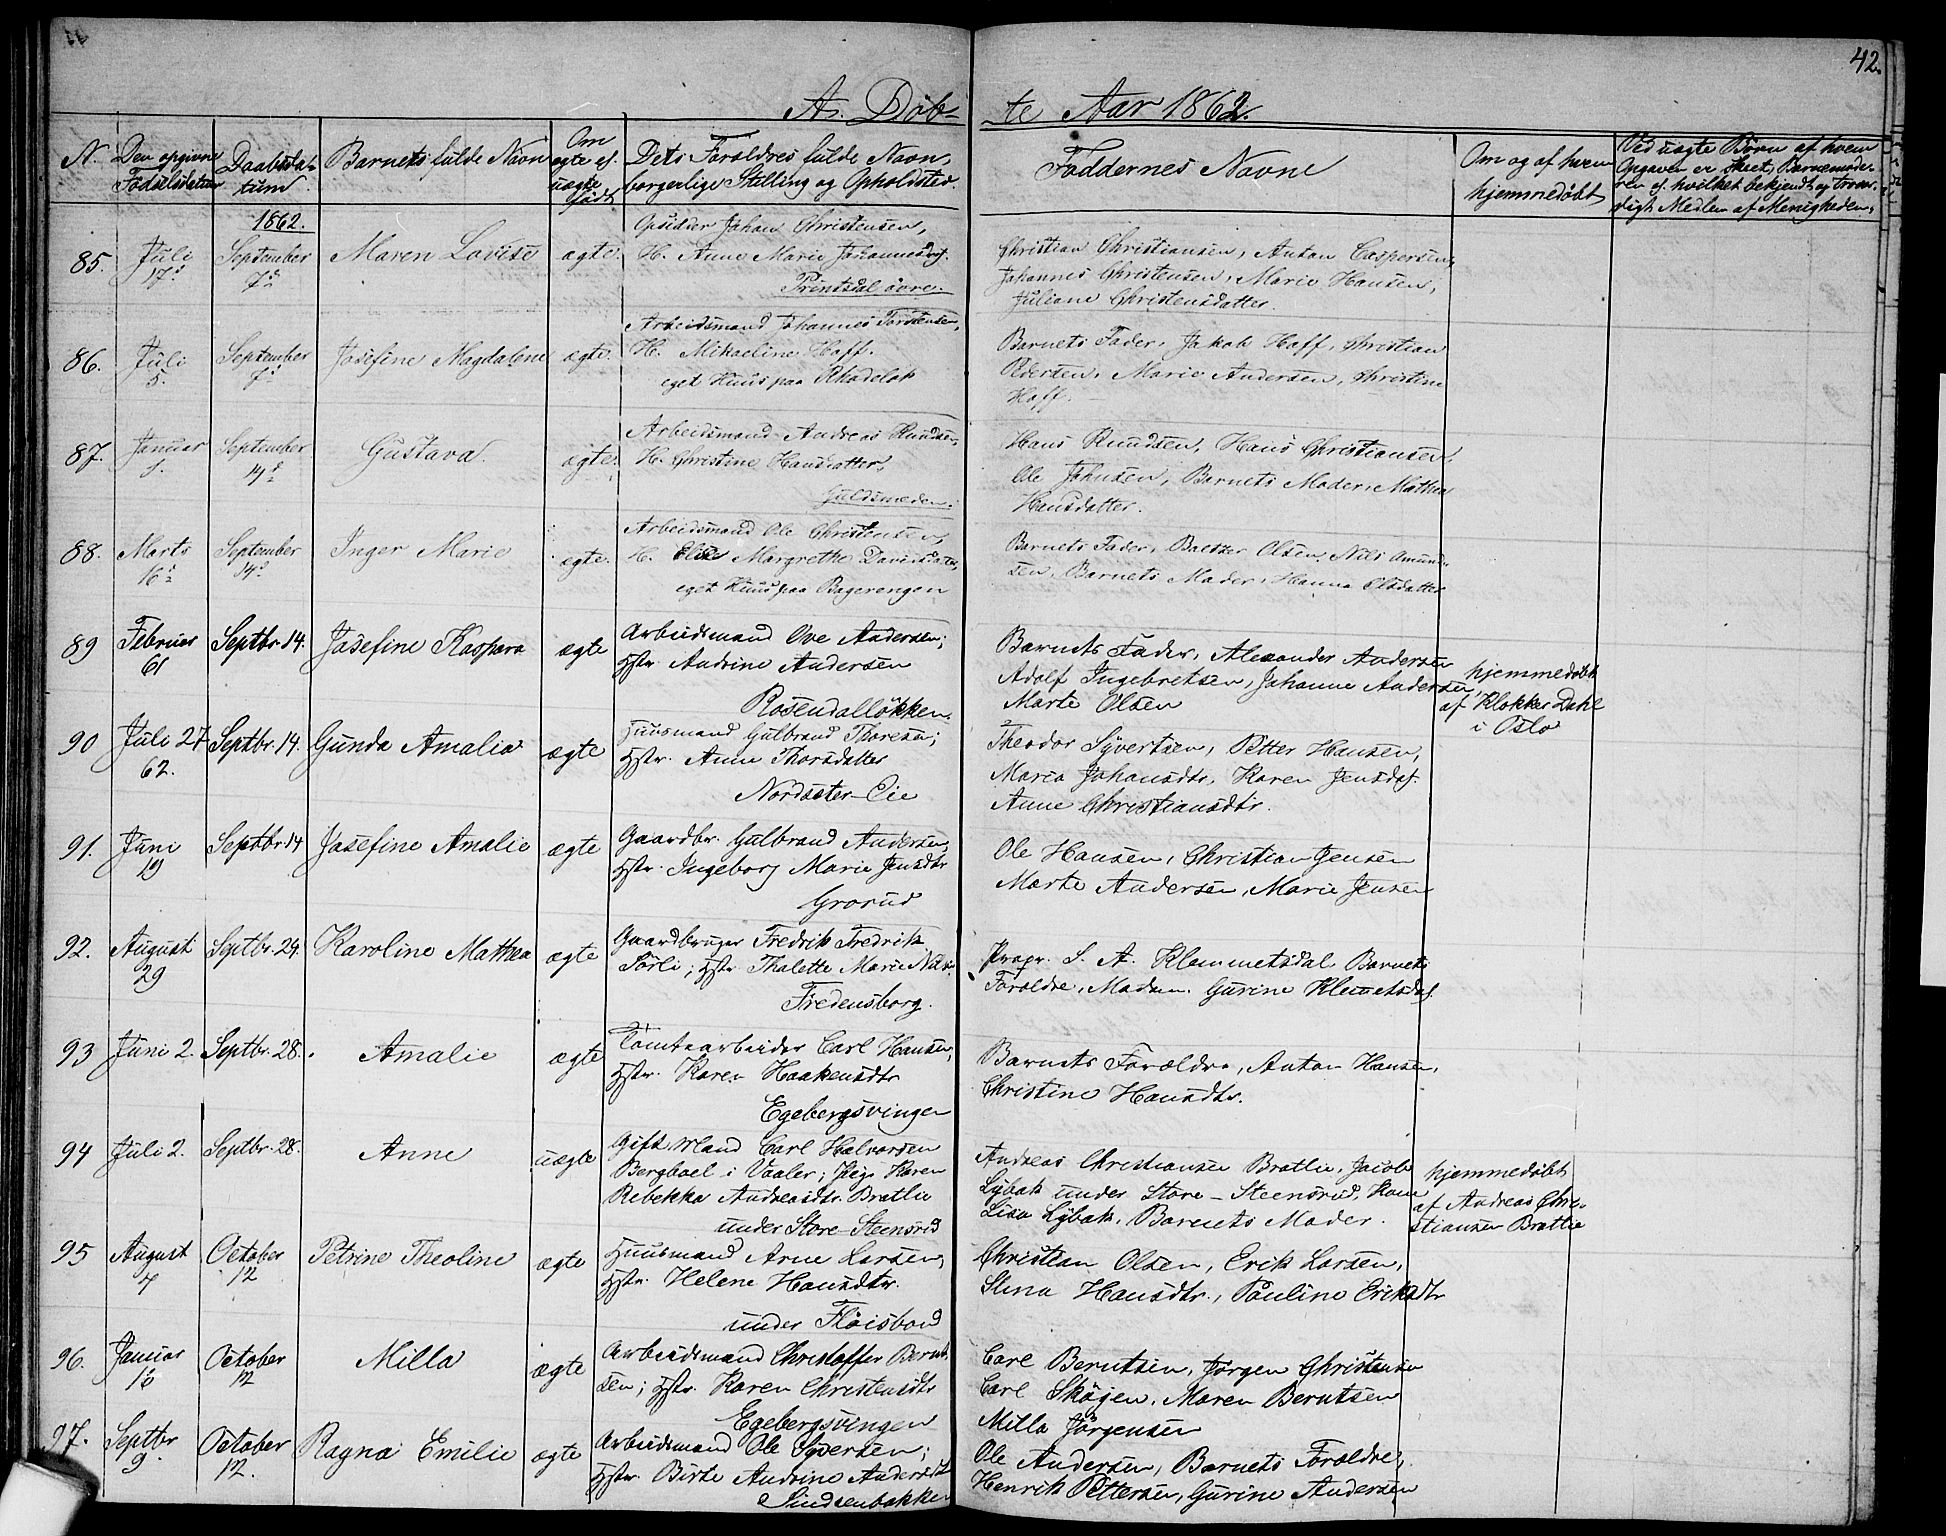 42.
A. Döb-
te Aar 1862.
N. Den opgivne Födselsdatum
Daabsda-
tum.
Barnets fulde Navn
Om
ægte el.
uægte
födt
Dets Forældres fulde Navn,
borgerlige Stilling og Opholdsted.
Faddernes Navne
Om og af hvem
hjemmedöbt
Ved uægte Börn af hvem
Opgaven er skeet, Barnemode-
ren el. hvilket bekjendt og trovær-
digt Medlem af Menigheden.
1862.
85. Juli 17. September 7. Maren Lovise ægte.
Johan Christensen,
H. Anne Marie Johannesd.
Printsdal övre.
Christian Christiansen, Anton Caspersen,
Johannes Christensen, Marie Hansen,
Juliane Christensdatter.
86. Juli 5. September 7. Josefine Magdalene ægte.
Arbeidsmand Johannes Torstensen,
H. Mikaeline Hoff.
eget Huus paa Rhodelök
Barnets Fader, Jakob Hoff, Christian
Pedersen, Marie Andersen, Christine
Hoff.
87. Januar September 14. Gustava. ægte.
Arbeidsmand Andreas Knudsen,
H. Christine Hansdatter,
Guldsmeden.
Hans Knudsen, Hans Christiansen,
Ole Johnsen, Barnets Moder, Mathea
Hansdatter.
88. Marts 16. September 14. Inger Marie ægte.
Arbeidsmand Ole Christensen,
H. Elise Margrethe Davidsdatter,
eget Huus paa Bagerengen
Barnets Fader, Baltzer Olsen, Nils Amund-
sen, Barnets Moder, Hanna Olsdatter
89 Februar 61 Septbr. 14. Josefine Kaspara ægte
Arbeidsmand Ove Andersen;
Hstr. Andrine Andersen
Rosendallökken.
Barnets Fader, Alexander Andersen
Adolf Ingebretsen, Johanne Andersen,
Marte Olsen
hjemmedöbt
af Klokker Dahl
i Oslo
90 Juli 27 62. Septbr. 14. Gunda Amalia ægte
Huusmand Gulbrand Thoresen;
Hstr. Anne Thorsdatter
Nordseter-Eie
Theodor Syvertsen, Petter Hansen,
Maria Johansdtr, Karen Jensdaf.
Anne Christiansdtr.
91. Juni 19 Septbr 14 Josefine Amalie ægte
Gaardbr. Gulbrand Andersen,
Hstr. Ingeborg Marie Jensdtr
Grorud
Ole Hansen, Christian Jensen
Marte Andersen, Marie Jensen
92. August 29 Septbr. 29. Karoline Mathea ægte
Gaardbruger Fredrik Fredrik
Sörli; Hstr. Thalette Marie
Fredensborg.
Propr. S. A. Klemmetsdal Barnets
Forældre, Madam. Gurine Klemetsdal.
93 Juni 2. Septbr. 28. Amalie ægte
Tomtearbeider Carl Hansen,
Hstr. Karen Haakensdtr
Egebergsvingen
Barnets Forældre, Anton Hansen,
Christine Hansdtr.
94 Juli 2. Septbr. 28. Anne uægte
Gift Mand Carl Halvorsen
Bergboel i Vaaler; Pige Karen
Rebekka Andreasdtr. Bratlie
under Store-Steensrud
Andreas Christiansen Bratlie, Jacob
Lybak under Store-Steensrud, Karn
Lisa Lybak, Barnets Moder.
hjemmedöbt
af Andreas Chri-
stiansen Bratlie
95 August 4 October 12 Petrine Theoline ægte
Huusmand Arne Larsen,
Hstr. Helene Hansdtr.
under Flöisbond
Christian Olsen, Erik Larsen,
Stina Hansdtr., Pauline Eriksdtr
96. Januar 16 October 12 Milla ægte
Arbeidsmand Christoffer Bernt-
sen; Hstr. Karen Christensdtr
Egebergsvingen
Carl Berntsen, Jörgen Christensen
Carl Skögen, Maren Berntsen
Milla Jörgensen
97. Septbr 9. October 12. Ragna Emilie ægte
Arbeidsmand Ole Syversen;
Hstr. Birte Andrine Andersdtr
Sindsenbakken
Ole Andersen, Barnets Forældre,
Henrik Pettersen, Gurine Andersen